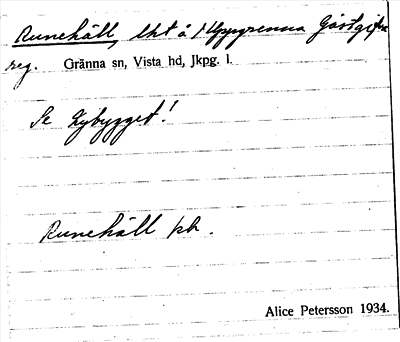 Runehäll, lht å 1 Uppgrenna Gästgifveri
reg. Gränna sn, Vista hd, Jkpg. l.
Se Nybygget!
Runehäll ph.
Alice Petersson 1934.